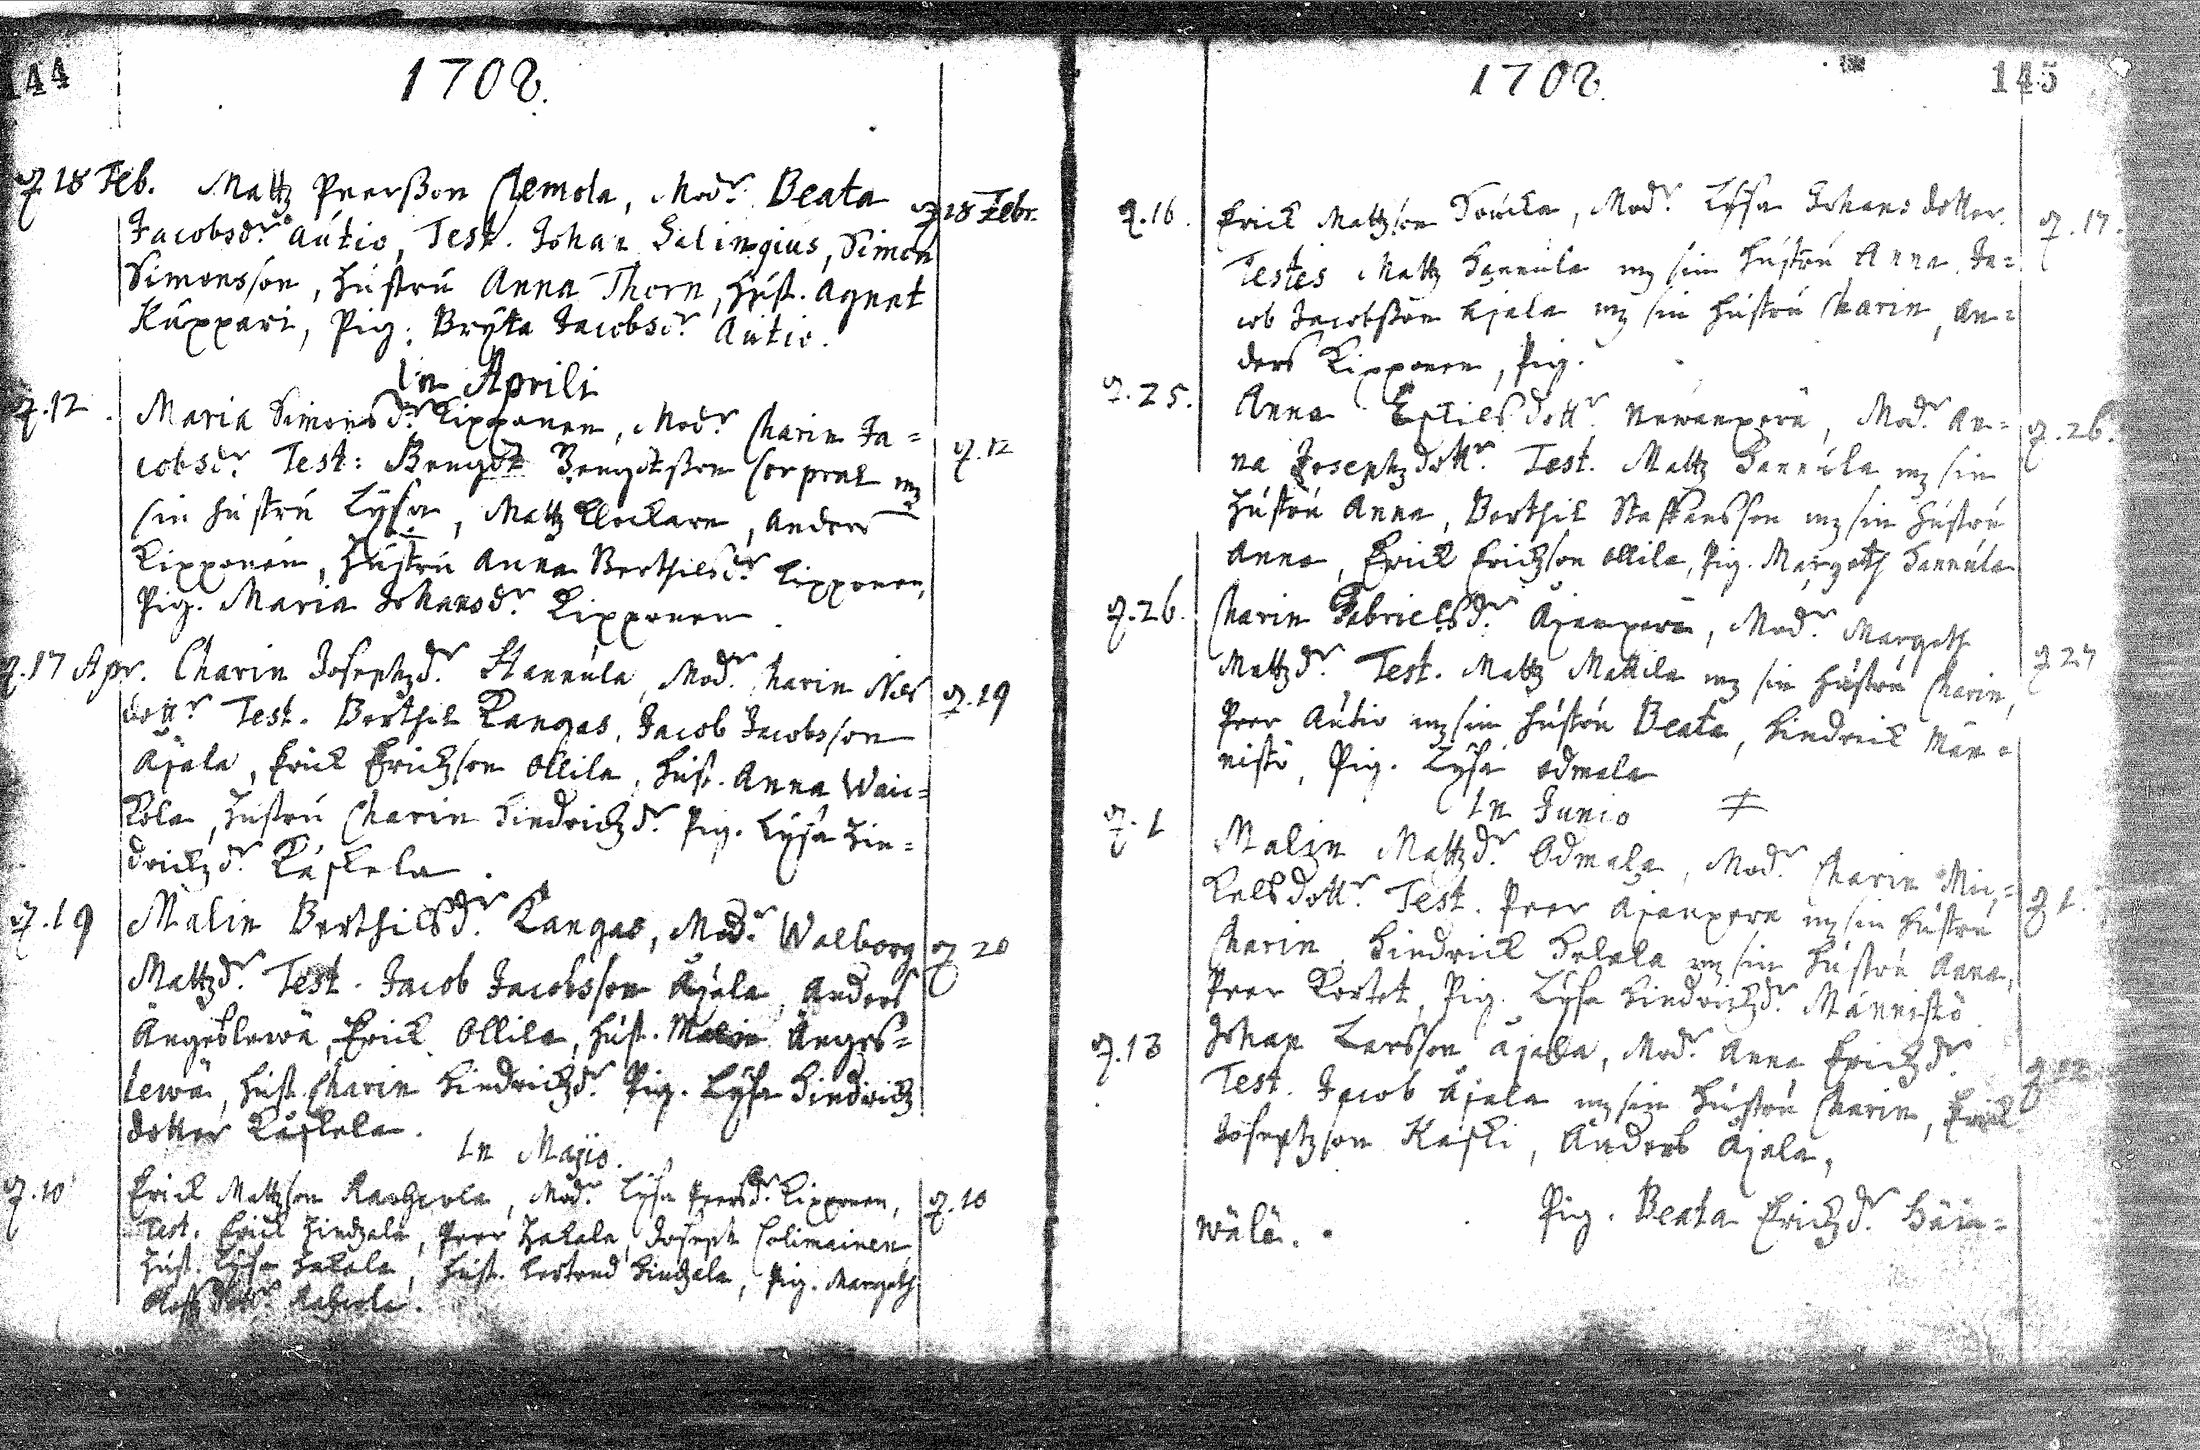 144
1708.
d. 18 Feb. Mattz Peersson Clemola, Modr. Beata d. 18 Febr.
Jacobsdr. Autio, Test. Johan Salingius, Simon
Simonsson, hustru Anna Thorn, hust. Agnet
Kuppari, Pig: Bryta Jacobsdr Autio.
In Aprili
d. 12. Maria Simonsdr. Kipponen, Modr. Charin Ja= d. 12
cobsdr Test: Bengdt Bengdtsson Corpral mz
sin hustru Lysa, Mattz Clockare, Anders
Kipponen, hustru Anna Berthilsdr Kipponen,
Pig. Maria Johansdr. Kipponen.
d. 17 Apr. Charin Josephzdr. Hannula, Modr. Charin Nils d. 19
dottr Test. Berthil Kangas, Jacob Jacobsson
Äjäla, Erick Erickzson Ollila, hust. Anna Wai=
kola, hustru Charin Hindrickzdr. Pig. Lysa Hin=
drickzdr. Kaskela.
d. 19 Malin Berthilsdr. Kangas, Modr. Walborg d. 20
Mattzdr. Test. Jacob Jacobsson Äjäla, Anders
Ängeslewä, Erick Ollila, hust. Malin Änges=
lewä, hust. Charin Hindrickzdr. Pig. Lysa Hindrickz
dotter Kaskela.
In Majio.
d. 10 Erick Mattzson Raudiola, Modr. Lysa Peersdr. Kipponen, d. 10
Test. Erick Hindzala, Peer Hakala, Joseph Colimainen,
hust. Lysa Hakala, hust. Hindzala, Pig. Margeth
145
1708.
d. 16. Erick Mattzson Soucka, Modr. Lysa Johans dotter. d. 17.
Testes Mattz Hannula mz sin hustru Anna, Ja=
cob Jacobsson Äjala mz sin hustru Charin, An=
ders Kipponen, Pig.
d. 25. Anna Eskilsdottr Newanperä, Modr. An= d. 26.
na Josephzdottr. Test. Mattz Hannula mz sin
hustru Anna, Berthil Staffansson mz sin hustru
Anna, Erick Erickzson Ollila, Pig. Margeth Hannula
d. 26. Charin Gabrielsdr. Äjänperä, Modr. Margeth d 27
Mattzdr. Test. Mattz Mattila mz sin hustru Charin,
Peer Autio mz sin hustru Beata, Hindrick Män=
nistö, Pig. Lysa Ödmala
In Junio
d. 1 Malin Mattzdr. Ödmala, Modr. Charin Mic= d 1.
kelsdottr. Test. Peer Äjänperä mz sin hustru
Charin, Hindrick Helala mz sin hustru Anna,
Peer Kortet, Pig. Lysa Hindrickzdr. Männistö
d. 13 Johan Larsson Äjala, Modr. Anna Erickzdr.
Test. Jacob Äjala mz sin hustru Charin, Erick
Josephzson Kaski, Anders Äjala,
Pig. Beata Erickzdr. Häin=
wälä.